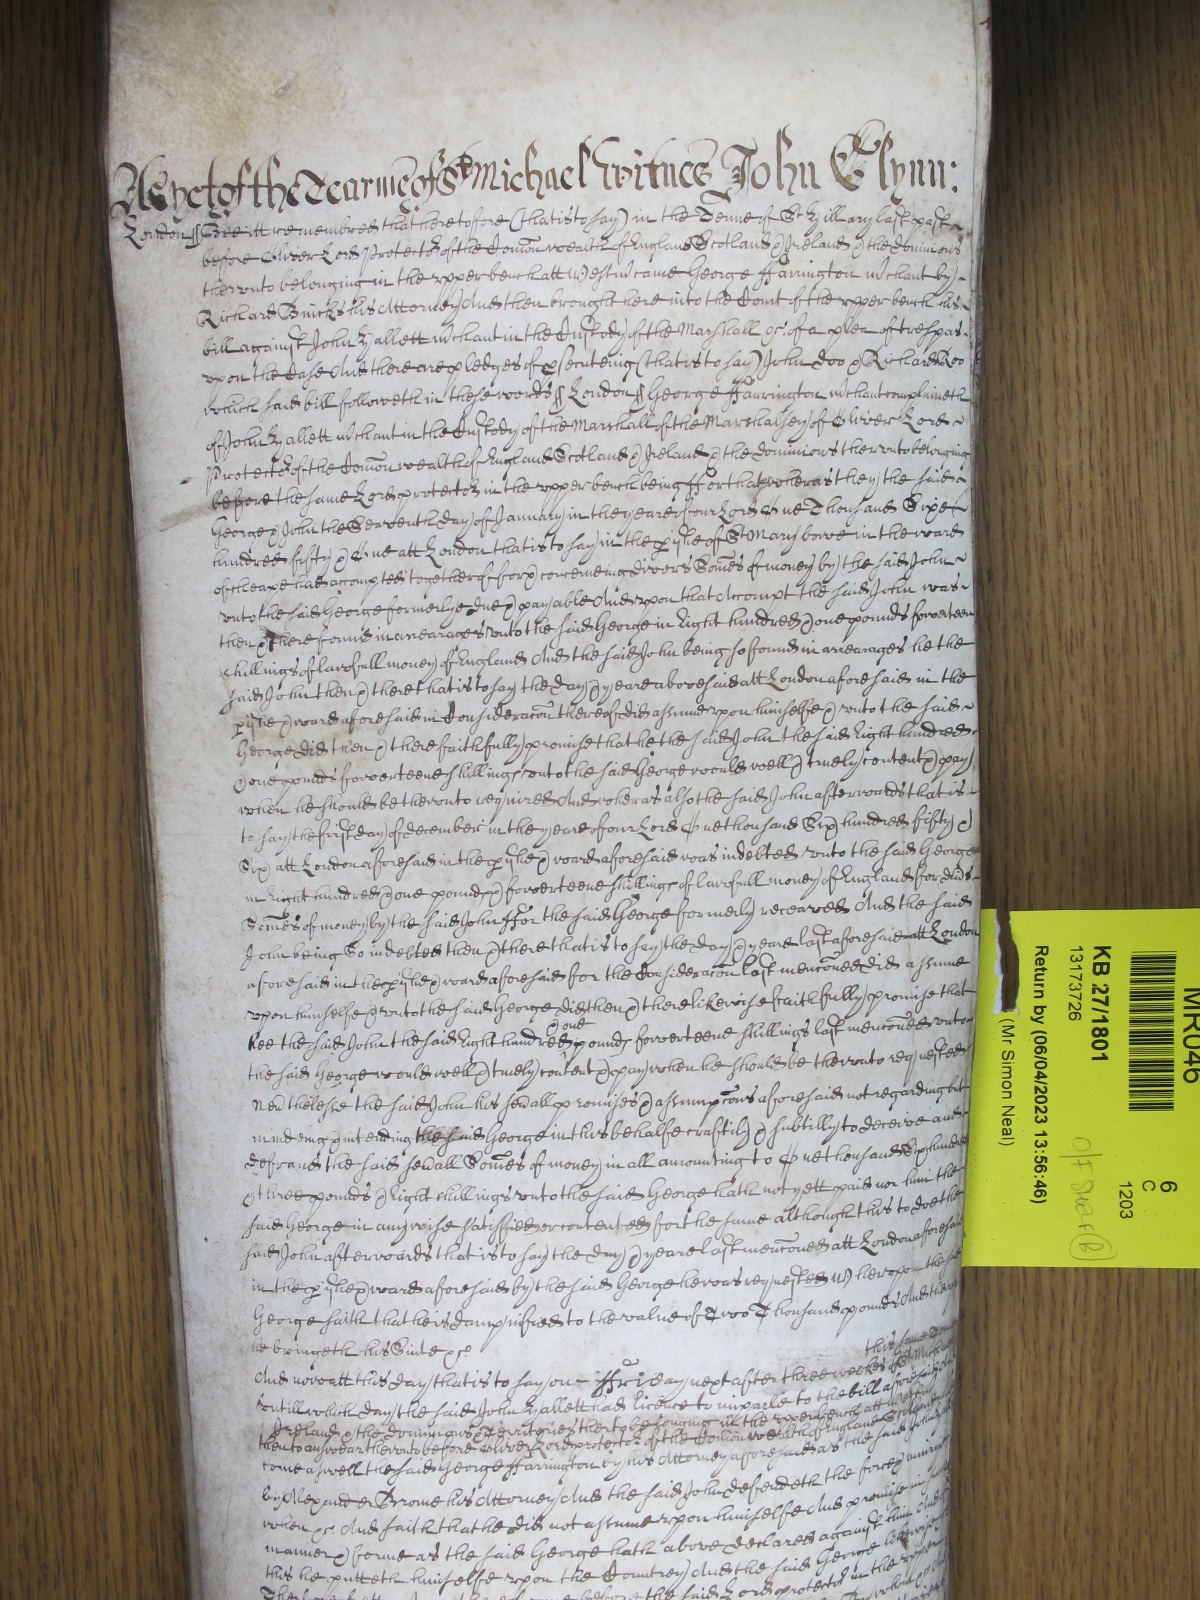 As yet of the Tearme of St Michael Witnes John Glynn:
London ss Bee itt remembred that heretofore (that is to say) in the Terme of St Hillary last past
before Oliver Lord Protector of the Comon wealth of England Scotland & Ireland & the dominions
therunto belonging in the upper bench att Westm came George Harrington mchant by
Richard Buicks his Attorney And then brought here into the Court of the upper bench his
bill against John Hallett mchant in the Custody of the Marshall &c of a plea of trespas
upon the Case And there are pledges of psecuteing (that is to say) John Doo & Richard Roo
which said bill followeth in these words ss London ss George Harrington mchant complaineth
of John Hallett mchant in the Custody of the Marshall of the Marshalsey of Oliver Lord
Protector of the Comon wealth of England Scotland & Ireland & the dominions therunto belonging
before the same Lord protector in the upper bench being For that wheras they the said
George & John the Seaventh day of January in the yeare of our Lord One Thousand Sixe
hundred fifty & One att London that is to say in the pishe of St Mary bowe in the ward
of cheape had accompted together of for & concerneing divers Somes of money by the said John
unto the said George formerly due & payable And upon that Accompt the said John was
then & there found in arrearages unto the said George in Eight hundred & one pounds fowerteen
shillings of lawfull money of England And the said John being so found in arrearages he the
said John then & there that is to say the day & yeare abovesaid att London aforesaid in the
pishe & ward aforesaid in Consideracon thereof did assume upon himselfe & unto the said
George did then & there faithfully promise that he the said John the said Eight hundred
& one pounds fowerteene shillings unto the said George would well & truely content & pay
when he should be therunto required And wheras also the said John afterwards that is
to say the first day of december in the yeare of our Lord One thousand Six hundred fifty &
Six att London aforesaid in the pishe & ward aforesaid was indebted unto the said George
in Eight hundred & one pounds & fowerteene shillings of lawfull money of England for divers
Somes of money by the said John For the said George formerly receaved And the said
John being So indebted then & there that is to say the day & yeare last aforesaid att London
aforesaid in the pishe & ward aforesaid for the Consideracon last menconed did assume
upon himselfe & unto the said George did then & there likewise faithfully promise that
hee the said John the said Eight hundred & one pounds fowerteene shillings last menconed unto
the said George would well & truely content & pay when he should be therunto requested
Nevthelesse the said John his sevall promises & assumpcons aforesaid not regarding but
mindeing & intending the said George in this behalfe craftily & subtilly to deceive and
defraud the said sevall Somes of money in all amounting to One thousand Six hundred
& three pounds & Eight shillings unto the said George hath not yett paid nor him the
said George in any wise satisfied or contented for the same although this to doe the
said John afterwards that is to say the day & yeare last menconed att London aforesaid
in the pishe & ward aforesaid by the said George he was requested Wherupon the said
George saith that he is dampnified to the value of Two Thousand pounds And therupon
he bringeth his Suite &c
And now att this day that is to say on Friday next after three weekes of St Michael this same
untill which day the said John Hallett had licence to imparle to the bill aforesaid And
then to answear therunto before Oliver Lord protector of the Comon wealth of England Scotland
Ireland & the dominions & Territories therto belonging in the upper bench att Westm
come aswell the said George Harrington by his Attorney aforesaid as the said John
by Alexander Brome his Attorney And the said John defendeth the force & injury
when &c And saith that he did not assume upon himselfe And promise in
manner & forme as the said George hath above declared against him And
this he putteth himselfe upon the Countrey And the said George likewise
the said Lord protector in the upper
MR046
6
C
1203
KB 27/1801
13173726
Return by (06/04/2023 13:56:46)
(Mr Simon Neal)